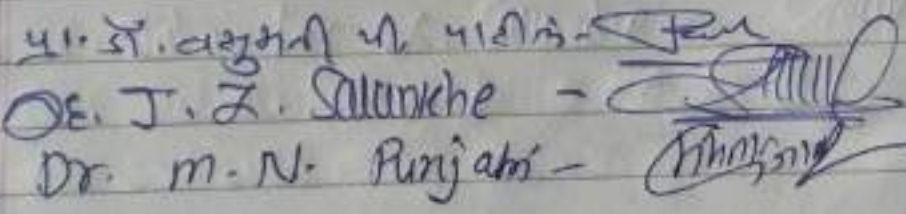 प्रा. डॉ. वसुमती पी. पाटील -
Dr. J. Z. Salunkhe -
Dr. M. N. Punjabi -